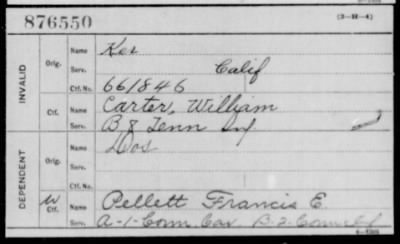 876550 (3-H-4)
INVALID
Orig. Name Ker
Serv. Calif
Ctf. No. 661846
Ctf. Name Carter, William
Serv. B 8 Tenn Inf
DEPENDENT
Orig. Name Dos
Serv.
Ctf. No.
W Ctf. Name Pellett Francis E.
Serv. A-1-Conn Cav. B-2-Conn